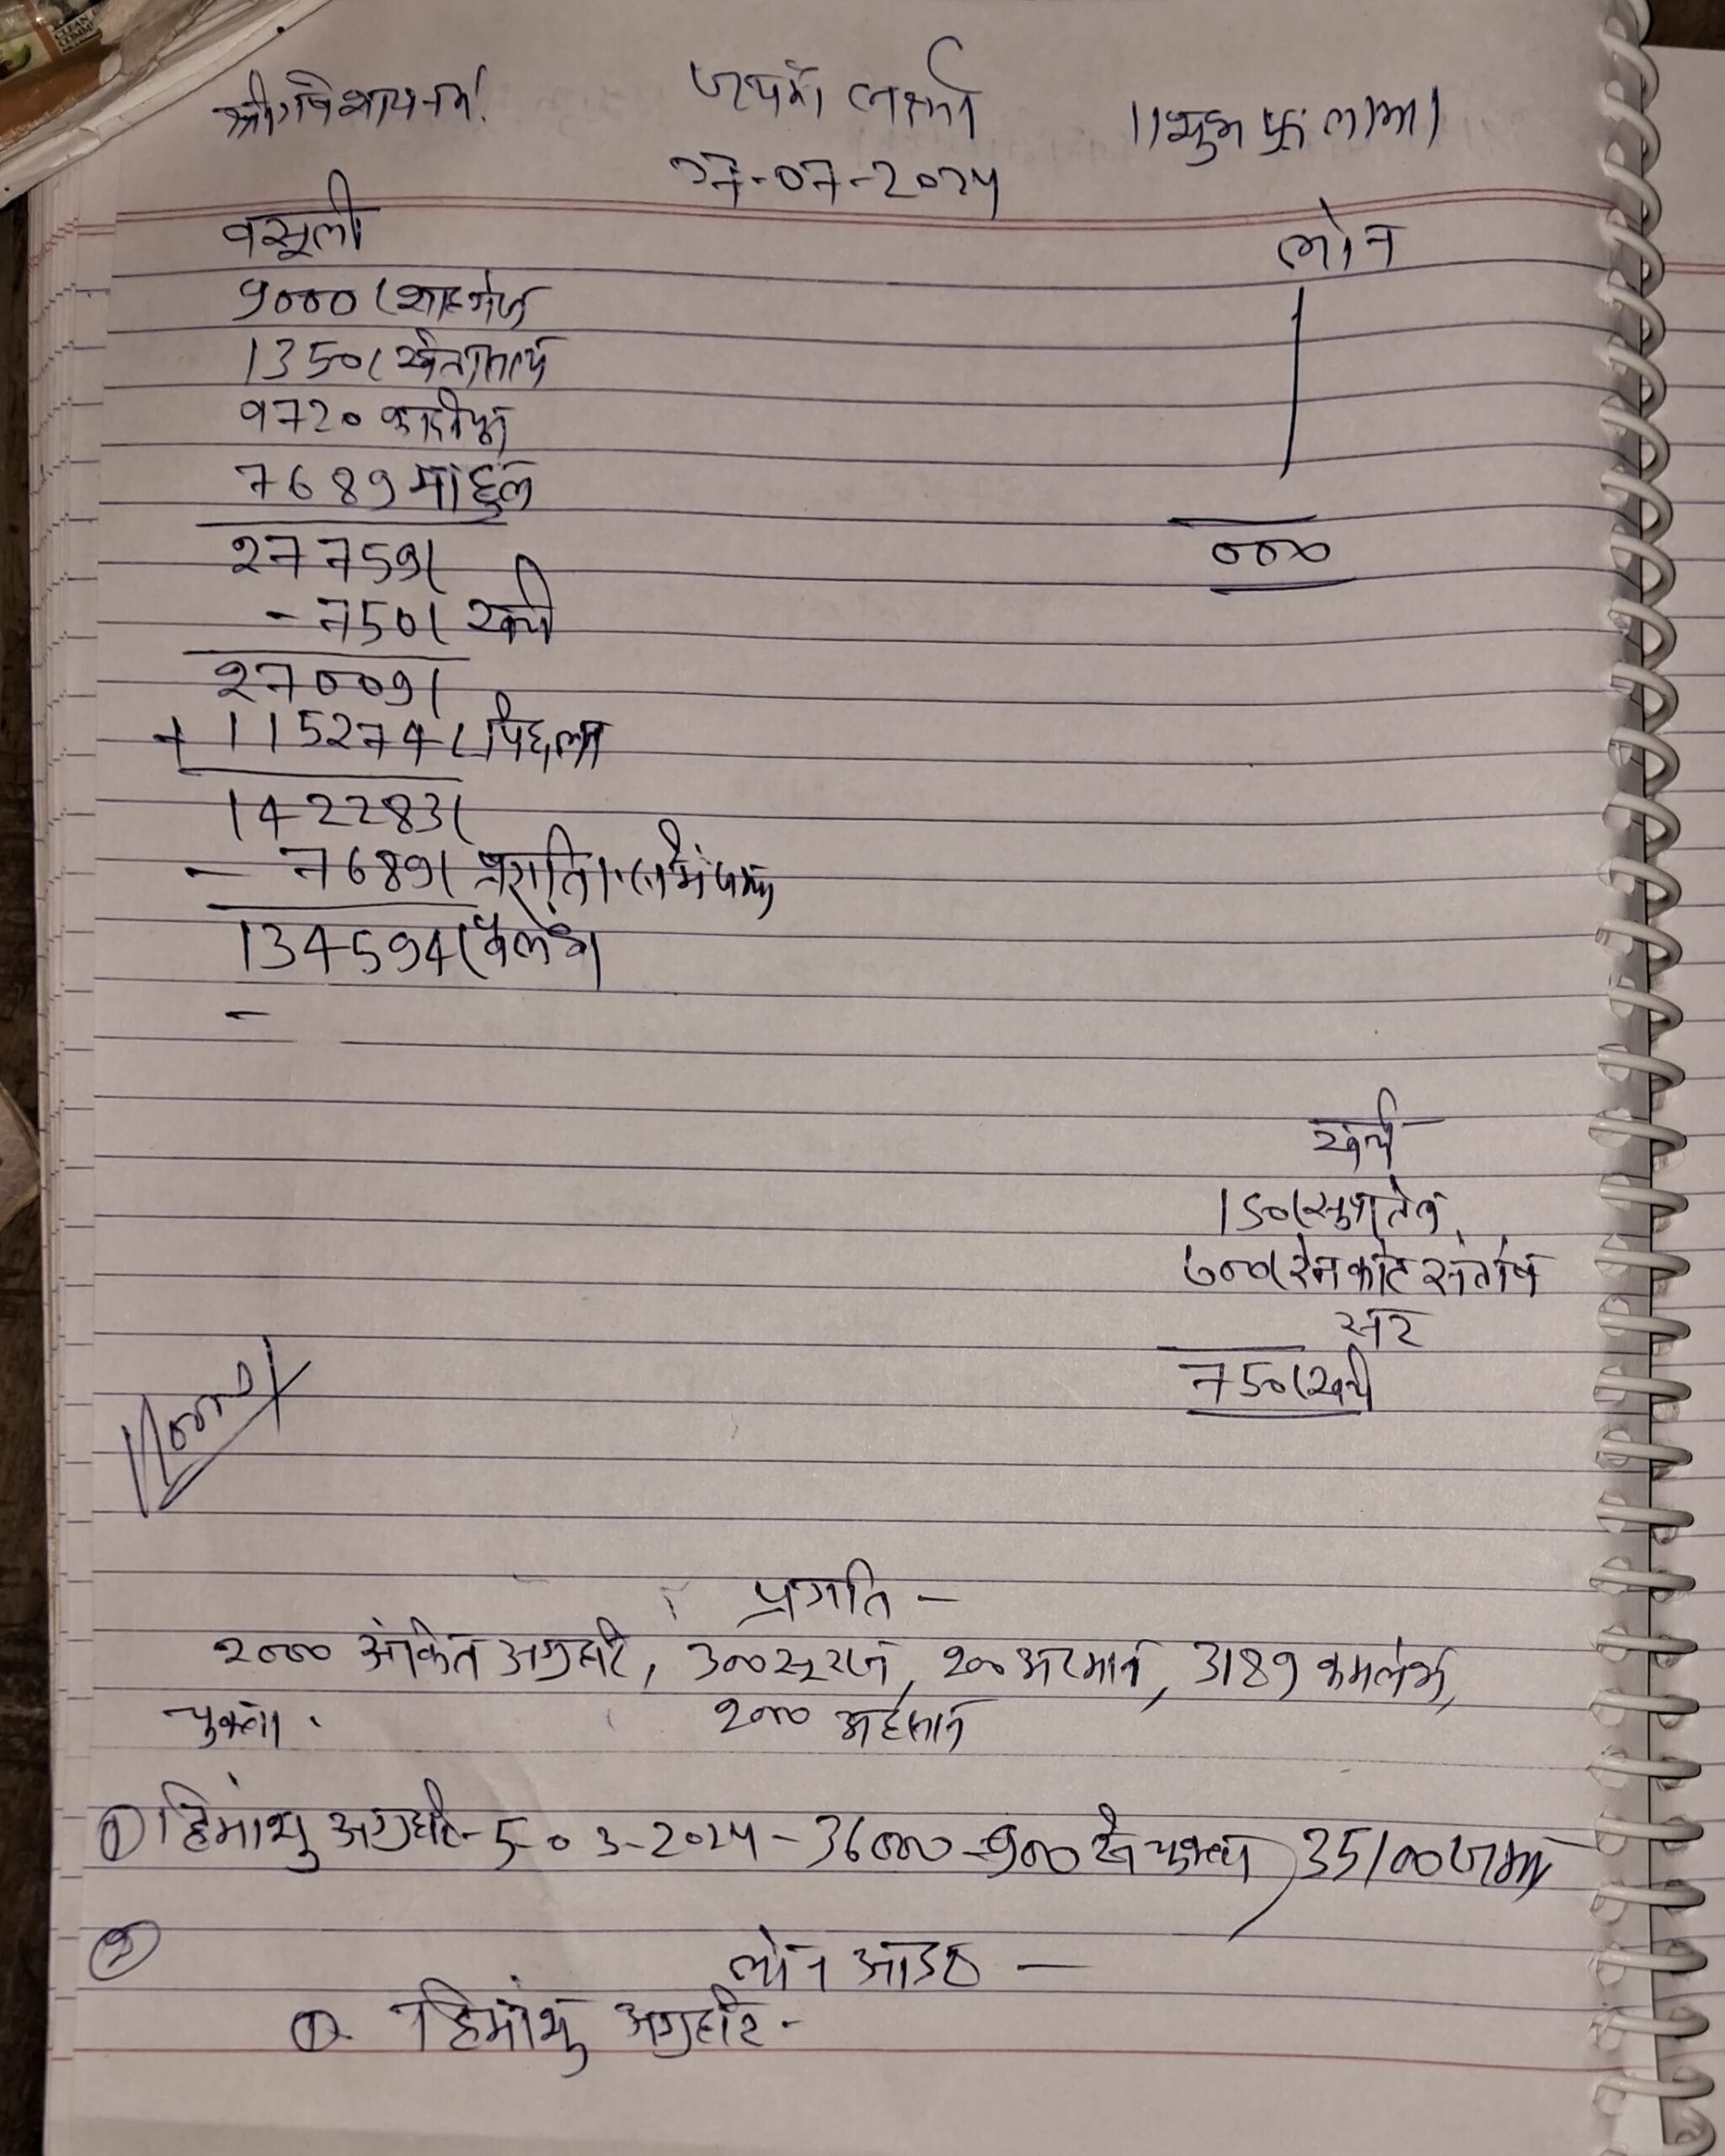 श्री गणेशाय नमः जय माँ लक्ष्मी ।।शुभ लाभ।
27-07-2025
वसूली लोन
9000(शाहगंज
1350(खेतासराय
9720
7689 माहुल
27759(
000
- 750( खर्च
27009(
+ 115274( पिछला
142283(
- 7689( प्रगति
134594(बैलेंस
-
खर्च
150( तेल
600(रेनकोट संतोष
सर
750(खर्च
प्रगति -
2000 अंकित अग्रहरि, 300 सूरज, 200 अरमान, 3189 कमलेश,
चुकता . 2000
① हिमांशु अग्रहरि - 5-03-2025 - 36000 - 900 छूट चुकता, 35100 जमा
② लोन आउट —
①. हिमांशु अग्रहरि -